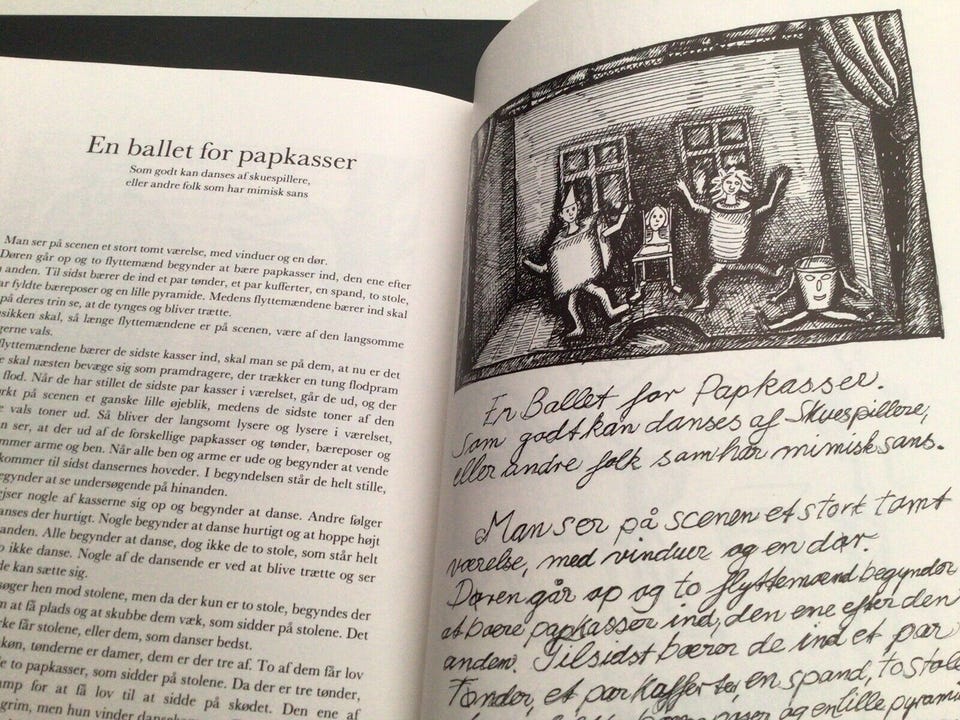 En ballet for papkasser
Som godt kan danses af skuespillere,
eller andre folk som har mimisk sans
Man ser på scenen et stort tomt værelse, med vinduer og en dør.
Døren går op og to flyttemænd begynder at bære papkasser ind, den ene efter
anden. Til sidst bærer de ind et par tønder, et par kufferter, en spand, to stole,
ar fyldte bæreposer og en lille pyramide. Medens flyttemændene bærer ind skal
på deres trin se, at de tynges og bliver trætte.
sikken skal, så længe flyttemændene er på scenen, være af den langsomme
gerne vals.
flyttemændene bærer de sidste kasser ind, skal man se på dem, at nu er det
e skal næsten bevæge sig som pramdragere, der trækker en tung flodpram
flod. Når de har stillet de sidste par kasser i værelset, går de ud, og der
ørkt på scenen et ganske lille øjeblik, medens de sidste toner af den
e vals toner ud. Så bliver der langsomt lysere og lysere i værelset,
n ser, at der ud af de forskellige papkasser og tønder, bæreposer og
mmer arme og ben. Når alle ben og arme er ude og begynder at vende
kommer til sidst dansernes hoveder. I begyndelsen står de helt stille,
egynder at se undersøgende på hinanden.
ejser nogle af kasserne sig op og begynder at danse. Andre følger
anses der hurtigt. Nogle begynder at danse hurtigt og at hoppe højt
anden. Alle begynder at danse, dog ikke de to stole, som står helt
o ikke danse. Nogle af de dansende er ved at blive trætte og ser
de kan sætte sig.
søger hen mod stolene, men da der kun er to stole, begyndes der
m at få plads og at skubbe dem væk, som sidder på stolene. Det
rke får stolene, eller dem, som danser bedst.
køn, tønderne er damer, dem er der tre af. To af dem får lov
e to papkasser, som sidder på stolene. Da der er tre tønder,
amp for at få lov til at sidde på skødet. Den ene af
grim, men hun vinder
En Ballet for Papkasser.
Som godt kan danses af Skuespillere,
eller andre folk som har mimisk sans.
Man ser på scenen et stort tomt
værelse, med vinduer og en dør.
Døren går op og to flyttemænd begynder
at bære papkasser ind, den ene efter den
anden. Til sidst bærer de ind et par
Tønder, et par Kufferter, en spand, to stole
poser og en lille pyrami